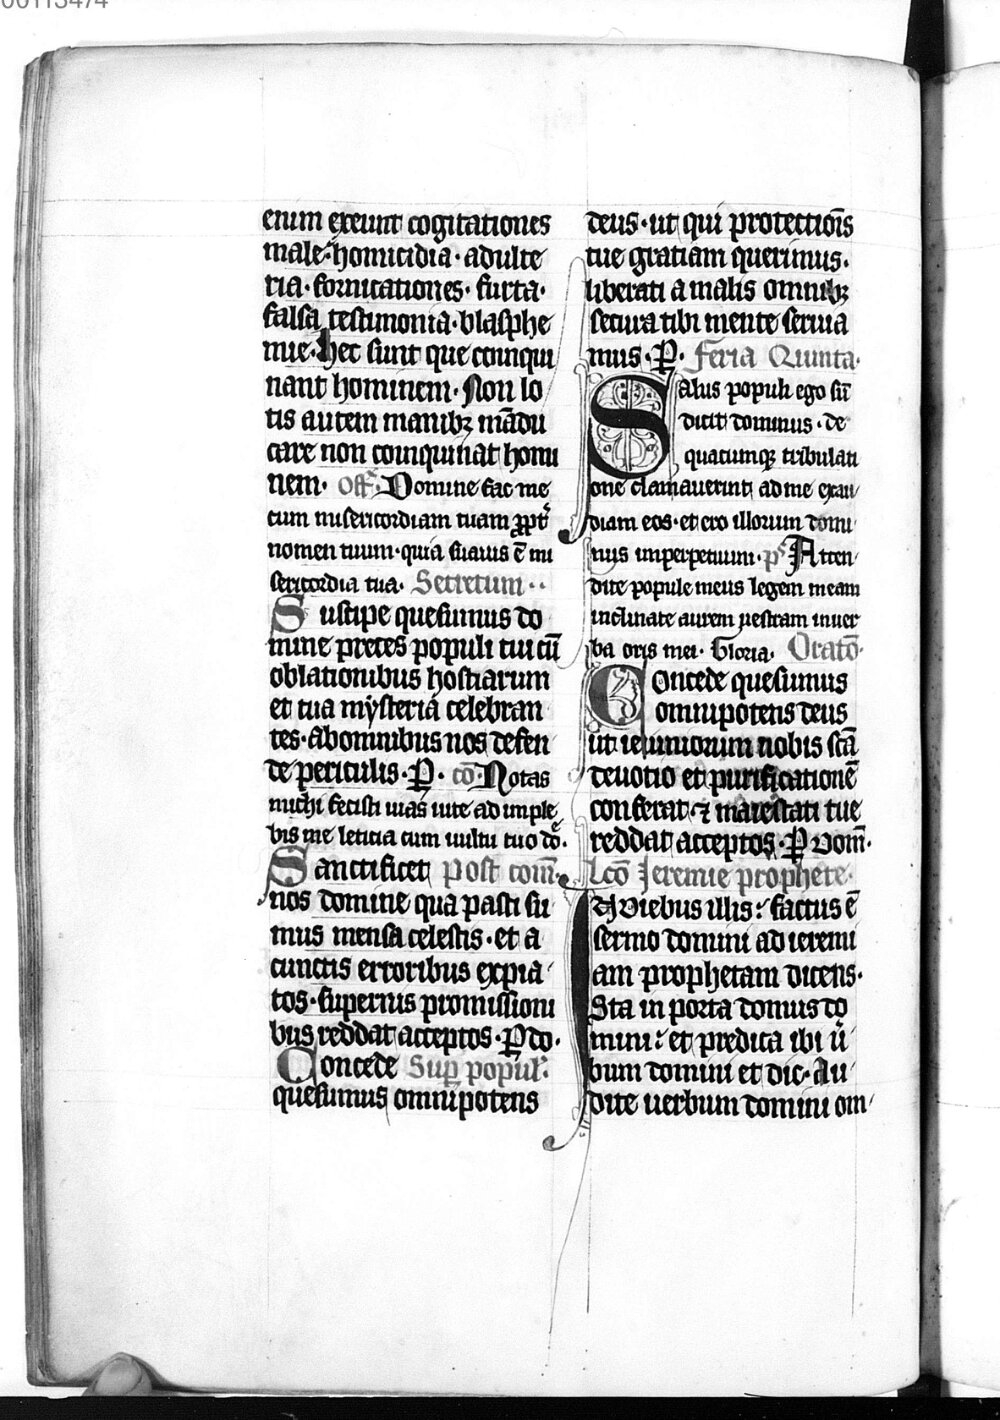 00113474
enim exeunt cogitationes
male· homicidia· adulte
ria· fornicationes· furta·
falsa testimonia· blasphe
mie· Hec sunt que coinqui
nant hominem· Non lo
tis autem manibꝫ mādu
care non coinquinat homi
nem· Off· Domine fac me
cum misericordiam tuam ꝓpt
nomen tuum· quia suauis ē mi
sericordia tua· Secretum··
Suscipe quesumus do
mine preces populi tui cū
oblationibus hostiarum
et tua mysteria celebran
tes· ab omnibus nos defen
de periculis· P· cō· Notas
michi fecisti uias uite ad imple
bis me leticia cum uultu tuo dō·
Sanctificet Post com̄·
nos domine qua pasti su
mus mensa celestis· et a
cunctis erroribus expia
tos· supernis promissioni
bus reddat acceptos· P do·
Concede Suꝑ popul·
quesumus omnipotens
deus· ut qui protectiōis
tue gratiam querimus·
liberati a malis omnibꝫ
secura tibi mente seruia
mus· P· Feria Quinta·
Salus populi ego sū
dicit dominus· de
quacumqꝫ tribulati
one clamauerint ad me exau
diam eos· et ero illorum domi
nus imperpetuum· ps Atten
dite popule meus legem meam
inclinate aurem uestram in uer
ba oris mei· Gloria· Oratō·
Concede quesumus
omnipotens deus
ut ieiuniorum nobis scā
deuotio et purificationē
conferat· ⁊ maiestati tue
reddat acceptos· P Dom̄·
Lcō Jeremie prophete·
In diebus illis: factus ē
sermo domini ad ieremi
am prophetam dicens·
Sta in porta domus do
mini: et predica ibi ū
bum domini et dic· Au
dite uerbum domini om